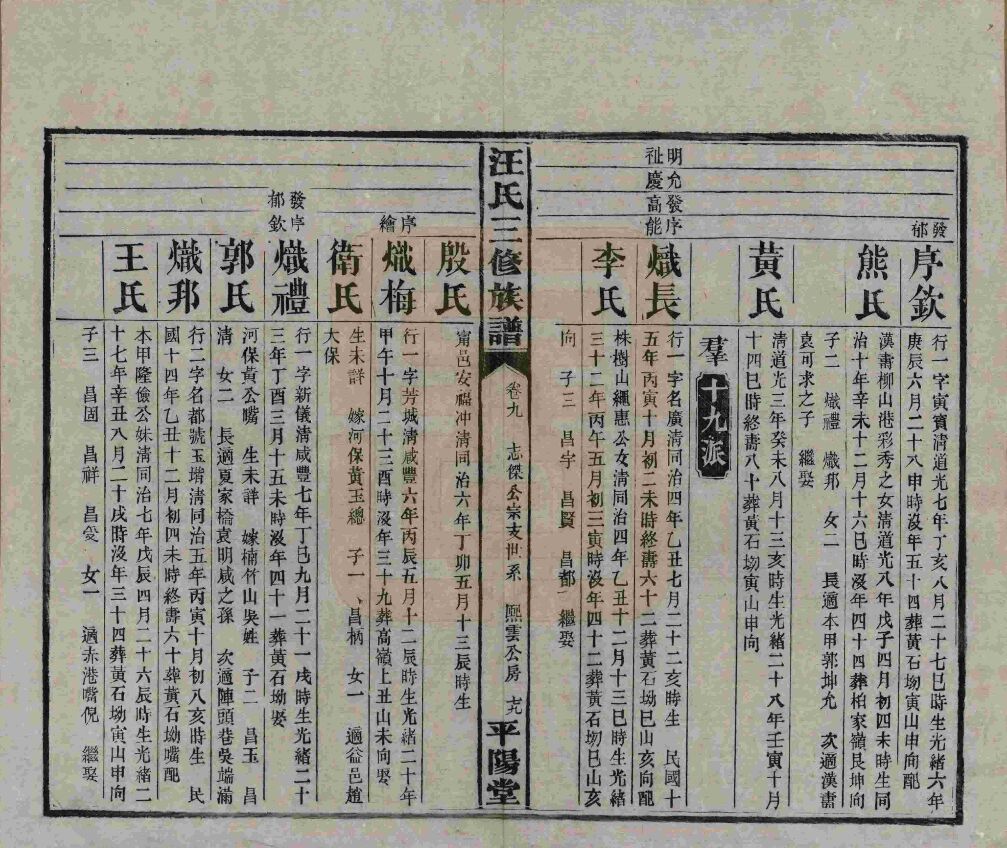 發
郁
序欽
行一字寅賓清道光七年丁亥八月二十七巳時生光緒六年
庚辰六月二十八申時沒年五十四葬黃石坳寅山申向配
熊氏
漢壽柳山港彩秀之女清道光八年戊子四月初四未時生同
治十年辛未十二月十六巳時沒年四十四葬柏家嶺艮坤向
子二 熾禮 熾邦 女二 長適本甲郭坤允 次適漢壽
袁可求之子 繼娶
黃氏
清道光三年癸未八月十三亥時生光緒二十八年壬寅十月
十四巳時終壽八十葬黃石坳寅山申向
羣 十九派
明允發序
祉慶高能
熾長
行一字名廣清同治四年乙丑七月二十二亥時生 民國十
五年丙寅十月初二未時終壽六十二葬黃石坳巳山亥向配
李氏
株樹山繩惠公女清同治四年乙丑十二月十三巳時生光緒
三十二年丙午五月初三寅時沒年四十二葬黃石坳巳山亥
向 子三 昌宇 昌賢 昌都 繼娶
汪氏三修族譜 卷九 志傑公宗支世系 熙雲公房 平陽堂
殷氏
甯邑安福冲清同治六年丁卯五月十三辰時生
序
繪
熾梅
行一字芳城清咸豐六年丙辰五月十二辰時生光緒二十年
甲午十月二十三酉時沒年三十九葬高嶺上丑山未向娶
衛氏
生未詳 嫁河保黃玉總 子一 昌柄 女一 適益邑趙
大保
發序
郁欽
熾禮
行一字新儀清咸豐七年丁巳九月二十一戌時生光緒二十
三年丁酉三月十五未時沒年四十一葬黃石坳娶
郭氏
河保黃公嘴 生未詳 嫁楠竹山吳姓 子二 昌玉 昌
清 女二 長適夏家橋袁明咸之孫 次適陣頭巷吳端滿
熾邦
行二字名都號玉堦清同治五年丙寅十月初八亥時生 民
國十四年乙丑十二月初四未時終壽六十葬黃石坳嘴配
王氏
本甲隆儉公妹清同治七年戊辰四月二十六辰時生光緒二
十七年辛丑八月二十戌時沒年三十四葬黃石坳寅山申向
子三 昌固 昌祥 昌受 女一 適赤港嘴倪 繼娶